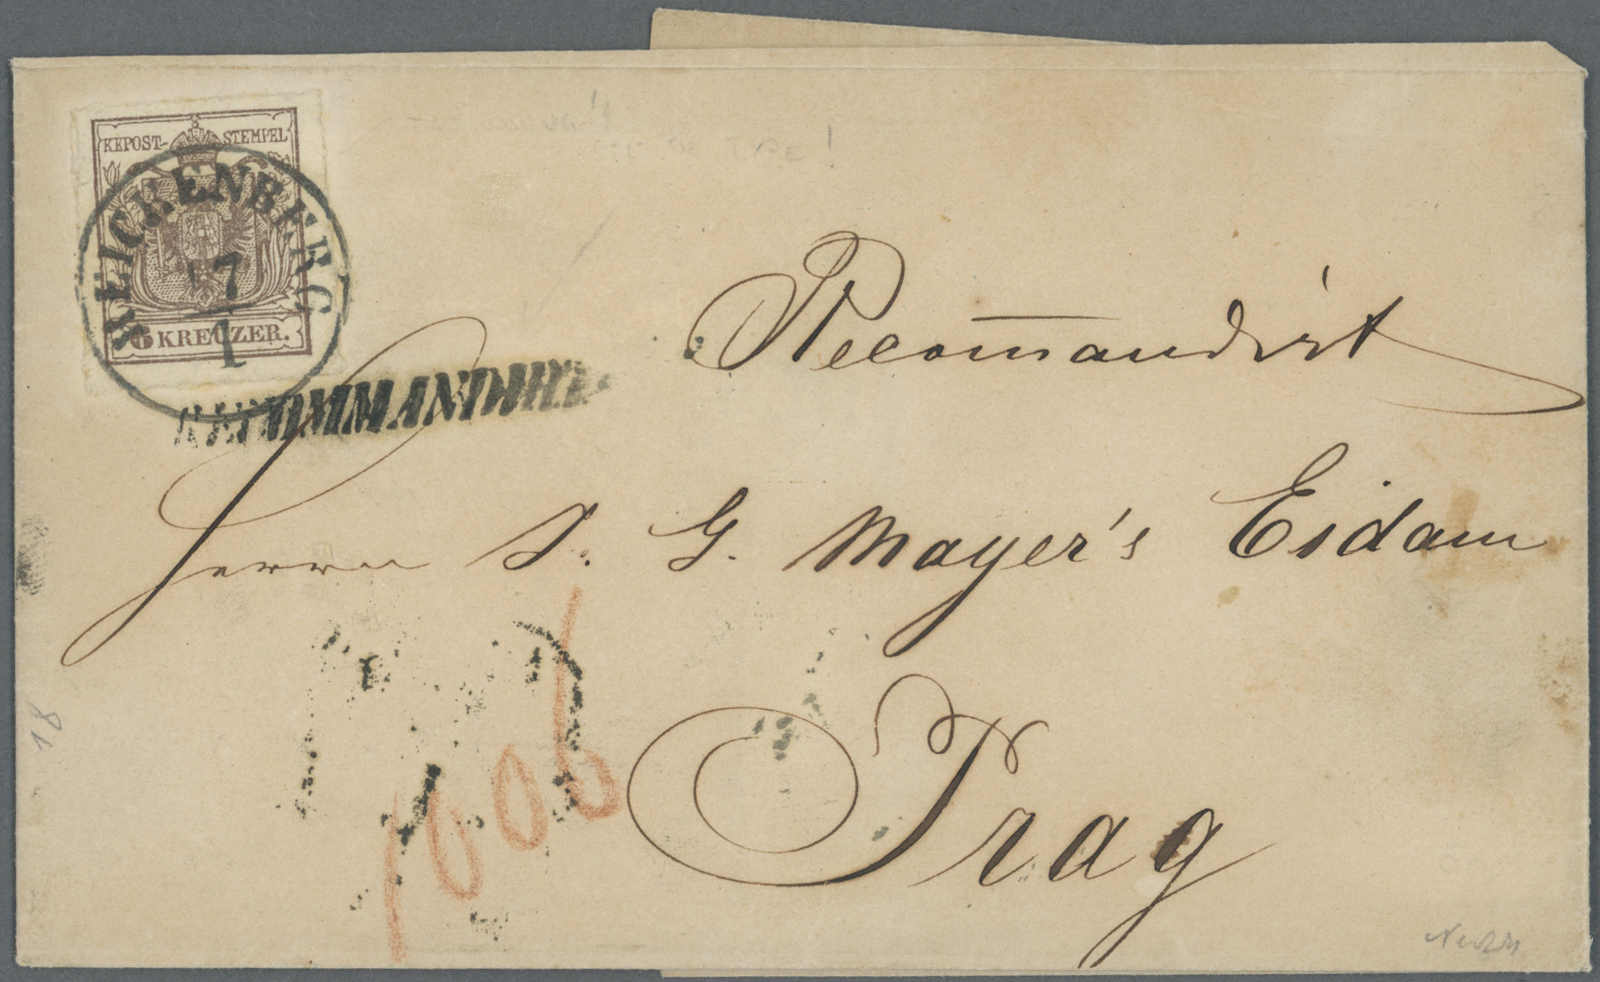 KKPOST-STEMPEL
6 KREUZER.
REICHENBERG
17
1
RECOMMANDIRT
Recomandirt
Herrn S. G. Mayer's Eidam
Prag
1006
18